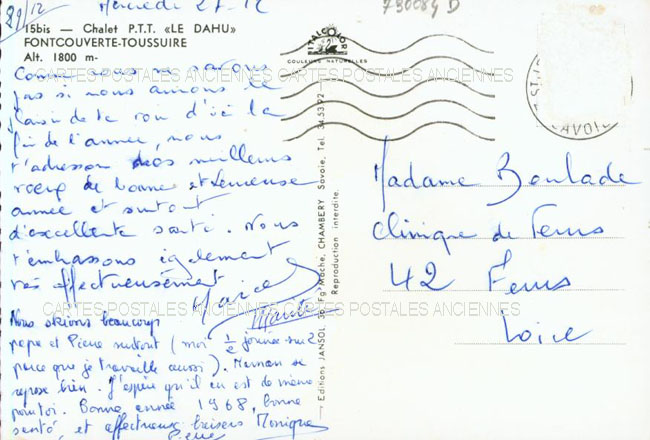 89/12
Mercredi 27-12
730084 D
15bis — Chalet P.T.T. «LE DAHU»
FONTCOUVERTE-TOUSSUIRE
Alt. 1800 m-
Comme nous ne savons
pas si nous aurons le
plaisir de te voir d'ici la
fin de l'année, nous
t'adressons nos meilleurs
voeux de bonne et heureuse
année et surtout
d'excellente santé. Nous
t'embrassons également
très affectueusement
Nous skions beaucoup
papa et Pierre surtout (moi ½ journée sur 2
parce que je travaille aussi). Maman se
repose bien. J'espère qu'il en est de même
pour toi. Bonne année 1968, bonne
santé, et affectueux baisers Monique
Pierre
ITALCOLOR
COULEURS NATURELLES
SAVOIE
Editions JANSOL, Fg Mache, CHAMBERY Savoie, Tel. 34.53.92 —
Reproduction interdite.
Madame Boulade
Clinique de Feurs
42 Feurs
Loire
CARTES POSTALES ANCIENNES CARTES POSTALES ANCIENNES
CARTES POSTALES ANCIENNES CARTES POSTALES ANCIENNES